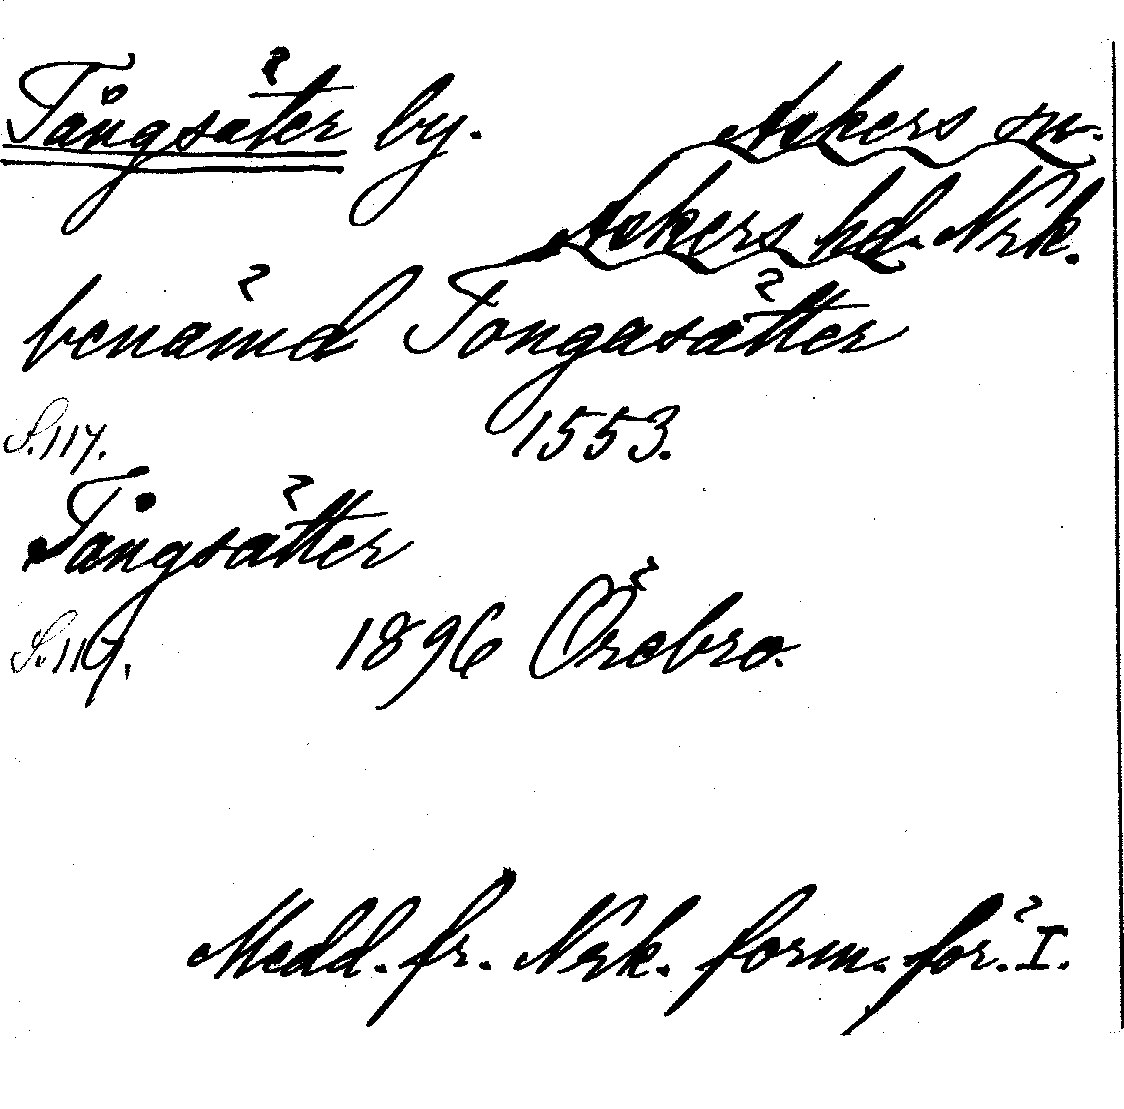 Tångsäter by. Askers sn.
Askers hd. Nrk.
benämd Tongasätter
S. 117. 1553.
Tångsätter
S. 117. 1896 Örebro.
Medd. fr. Nrk. forn. för. I.